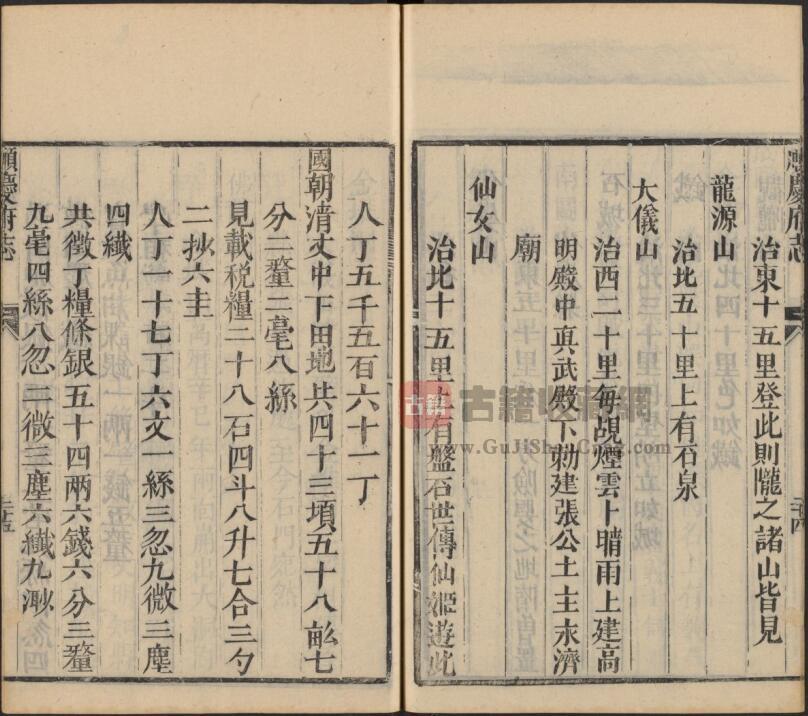 順慶府志
治東十五里登此則隴之諸山皆見
龍源山
治北五十里上有石泉
大儀山
治西二十里每覘煙雲卜晴雨上建高
明殿中真武殿下勅建張公土主永濟
廟
仙女山
治北十五里上有盤石世傳仙姬遊此
人丁五千五百六十一丁
國朝清丈中下田地共四十三頃五十八畝七
分二釐二毫八絲
見載税糧二十八石四斗八升七合三勺
二抄六圭
人丁一十七丁六文一絲三忽九微三塵
四纖
共徵丁糧條銀五十四兩六錢六分三釐
九毫四絲八忽二微三塵六纖九渺
順慶府志
古籍
古籍收藏網
www.GuJiShuCang.com